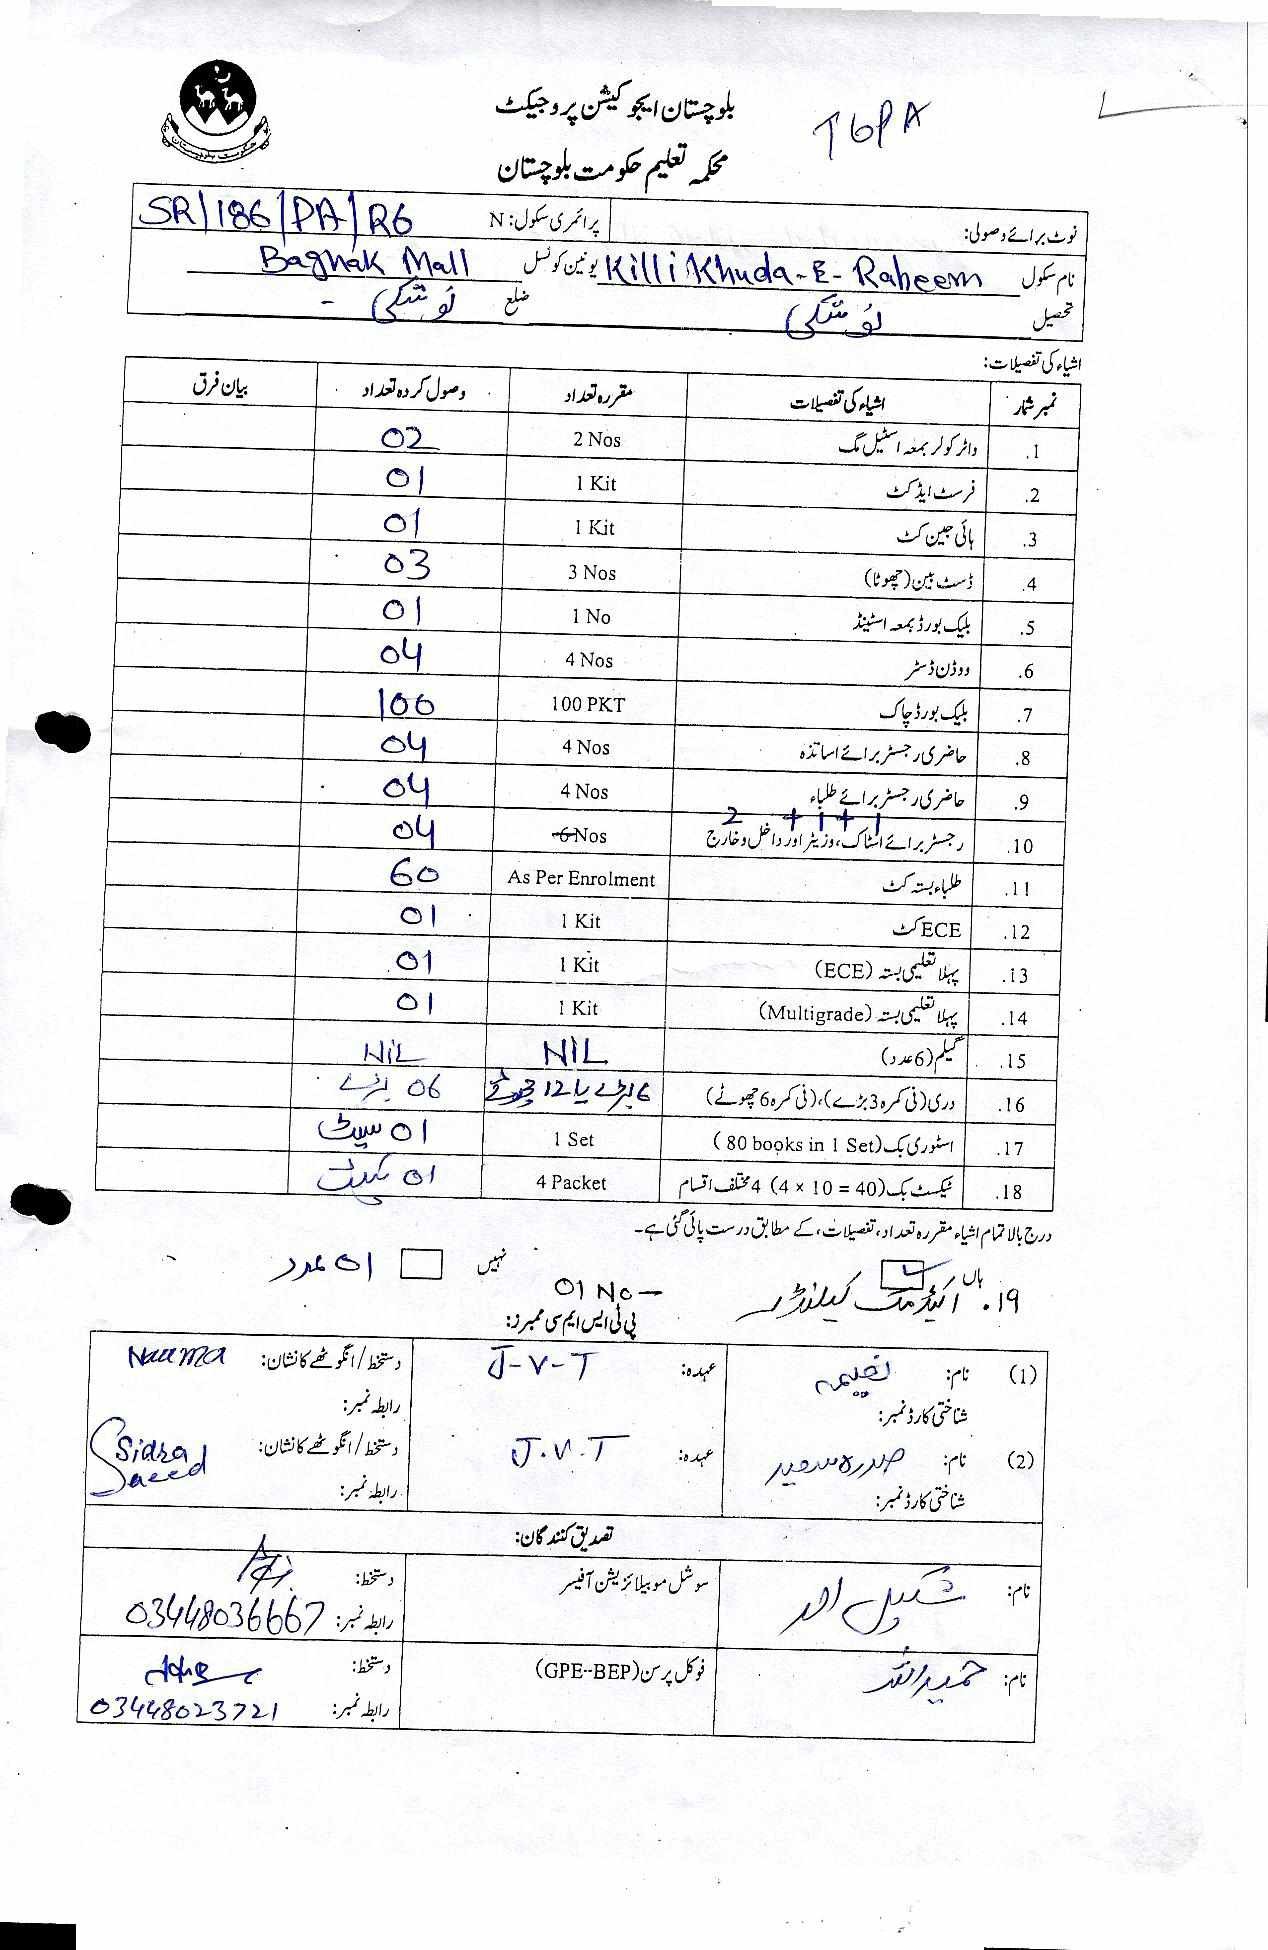 بلوچستان ایجوکیشن پروجیکٹ
TGPA
محکمہ تعلیم حکومت بلوچستان
حکومت بلوچستان
نوٹ برائے وصولی: پرائمری سکول: N SR/186/PA/R6
نام سکول Killi Khuda-E-Raheem یونین کونسل Baghak Mall
تحصیل نوشکی ضلع نوشکی -
اشیاء کی تفصیلات:
نمبر شمار اشیاء کی تفصیلات مقررہ تعداد وصول کردہ تعداد بیان فرق
1. واٹر کولر بمعہ اسٹیل مگ 2 Nos 02
2. فرسٹ ایڈ کٹ 1 Kit 01
3. ہائی جین کٹ 1 Kit 01
4. ڈسٹ بین (چھوٹا) 3 Nos 03
5. بلیک بورڈ بمعہ اسٹینڈ 1 No 01
6. ووڈن ڈسٹر 4 Nos 04
7. بلیک بورڈ چاک 100 PKT 100
8. حاضری رجسٹر برائے اساتذہ 4 Nos 04
9. حاضری رجسٹر برائے طلباء 4 Nos 04
2 + 1 + 1
10. رجسٹر برائے اسٹاک، وزیٹر اور داخل و خارج 6 Nos 04
11. طلباء بستہ کٹ As Per Enrolment 60
12. ECE کٹ 1 Kit 01
13. پہلا تعلیمی بستہ (ECE) 1 Kit 01
14. پہلا تعلیمی بستہ (Multigrade) 1 Kit 01
15. گلیم (6 عدد) NIL NIL
16. دری (فی کمرہ 3 بڑے)، (فی کمرہ 6 چھوٹے) 6 بڑے یا 12 چھوٹے 06 بڑے
17. اسٹوری بک (80 books in 1 Set) 1 Set 01 سیٹ
18. ٹیکسٹ بک (4 x 10 = 40) 4 مختلف اقسام 4 Packet 01
درج بالا تمام اشیاء مقررہ تعداد، تفصیلات، کے مطابق درست پائی گئی ہے۔
ہاں نہیں
19. اکیڈمک کیلنڈر 01 No- 01 عدد
پی ٹی ایس ایم سی ممبرز:
(1) نام: نعیمہ عہدہ: J-V-T دستخط/انگوٹھے کا نشان: Naeema
شناختی کارڈ نمبر: رابطہ نمبر:
(2) نام: صدرہ سعید عہدہ: J.V.T دستخط/انگوٹھے کا نشان: Sidra Saeed
شناختی کارڈ نمبر: رابطہ نمبر:
تصدیق کنندگان:
نام: شکیل احمد سوشل موبیلائزیشن آفیسر دستخط:
رابطہ نمبر: 03448036667
نام: حمید اللہ فوکل پرسن (GPE-BEP) دستخط:
رابطہ نمبر: 03448023721